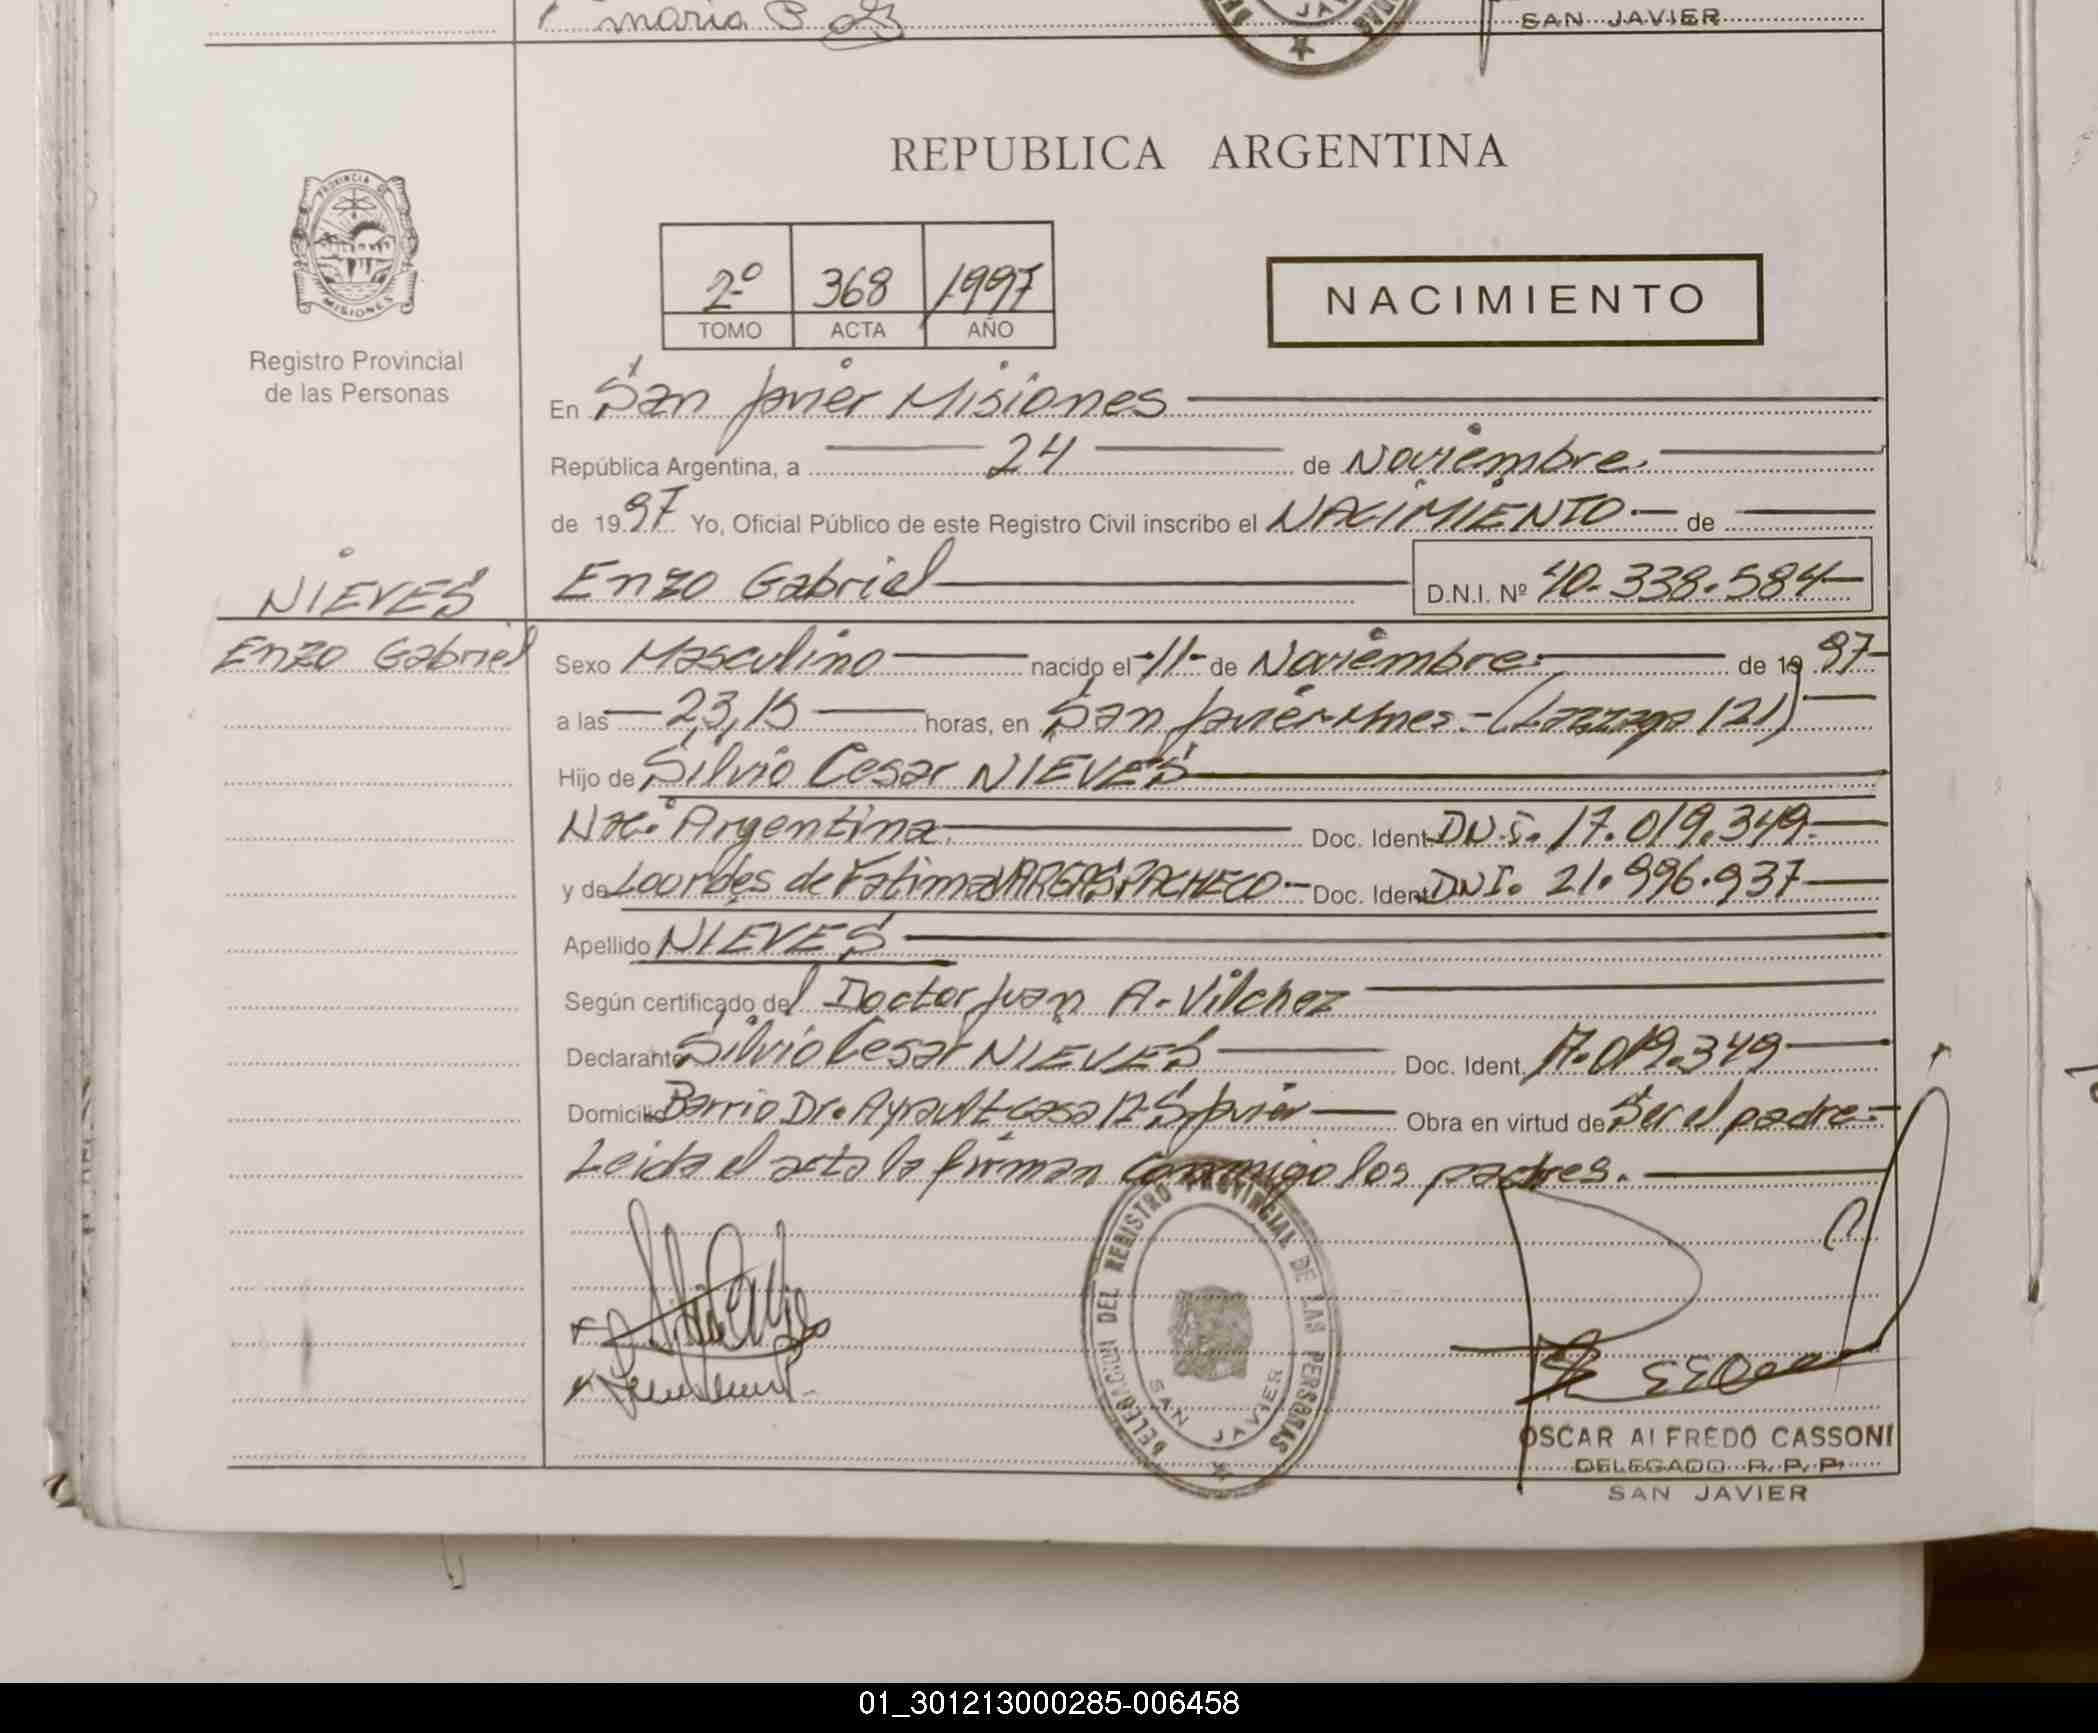 maria B
SAN JAVIER
REPUBLICA ARGENTINA
PROVINCIA DE
MISIONES
Registro Provincial
de las Personas
2º 368 1997
TOMO ACTA AÑO
NACIMIENTO
En San Javier Misiones
República Argentina, a 24 de Noviembre.
de 1997 Yo, Oficial Público de este Registro Civil inscribo el NACIMIENTO de
NIEVES
Enzo Gabriel D.N.I. Nº 40.338.584
Enzo Gabriel
Sexo Masculino nacido el 11 de Noviembre de 1997
a las 23,15 horas, en San Javier-Mnes.- ( 121)
Hijo de Silvio Cesar NIEVES
Nac. Argentina. Doc. Ident. DN.I. 17.019.349.
y de Lourdes de Fatima VARGAS PACHECO - Doc. Ident. DNI. 21.996.937
Apellido NIEVES
Según certificado del Doctor Juan A. Vilchez
Declarante Silvio Cesar NIEVES Doc. Ident. 17.019.349
Domicilio Barrio Dr. Ayrault casa 12 S/Javier Obra en virtud de Ser el padre-
Leida el acta la firman conmigo los padres.
DELEGACION DEL REGISTRO PROVINCIAL DE LAS PERSONAS
SAN JAVIER
OSCAR ALFREDO CASSONI
DELEGADO R.P.P.
SAN JAVIER
01_301213000285-006458